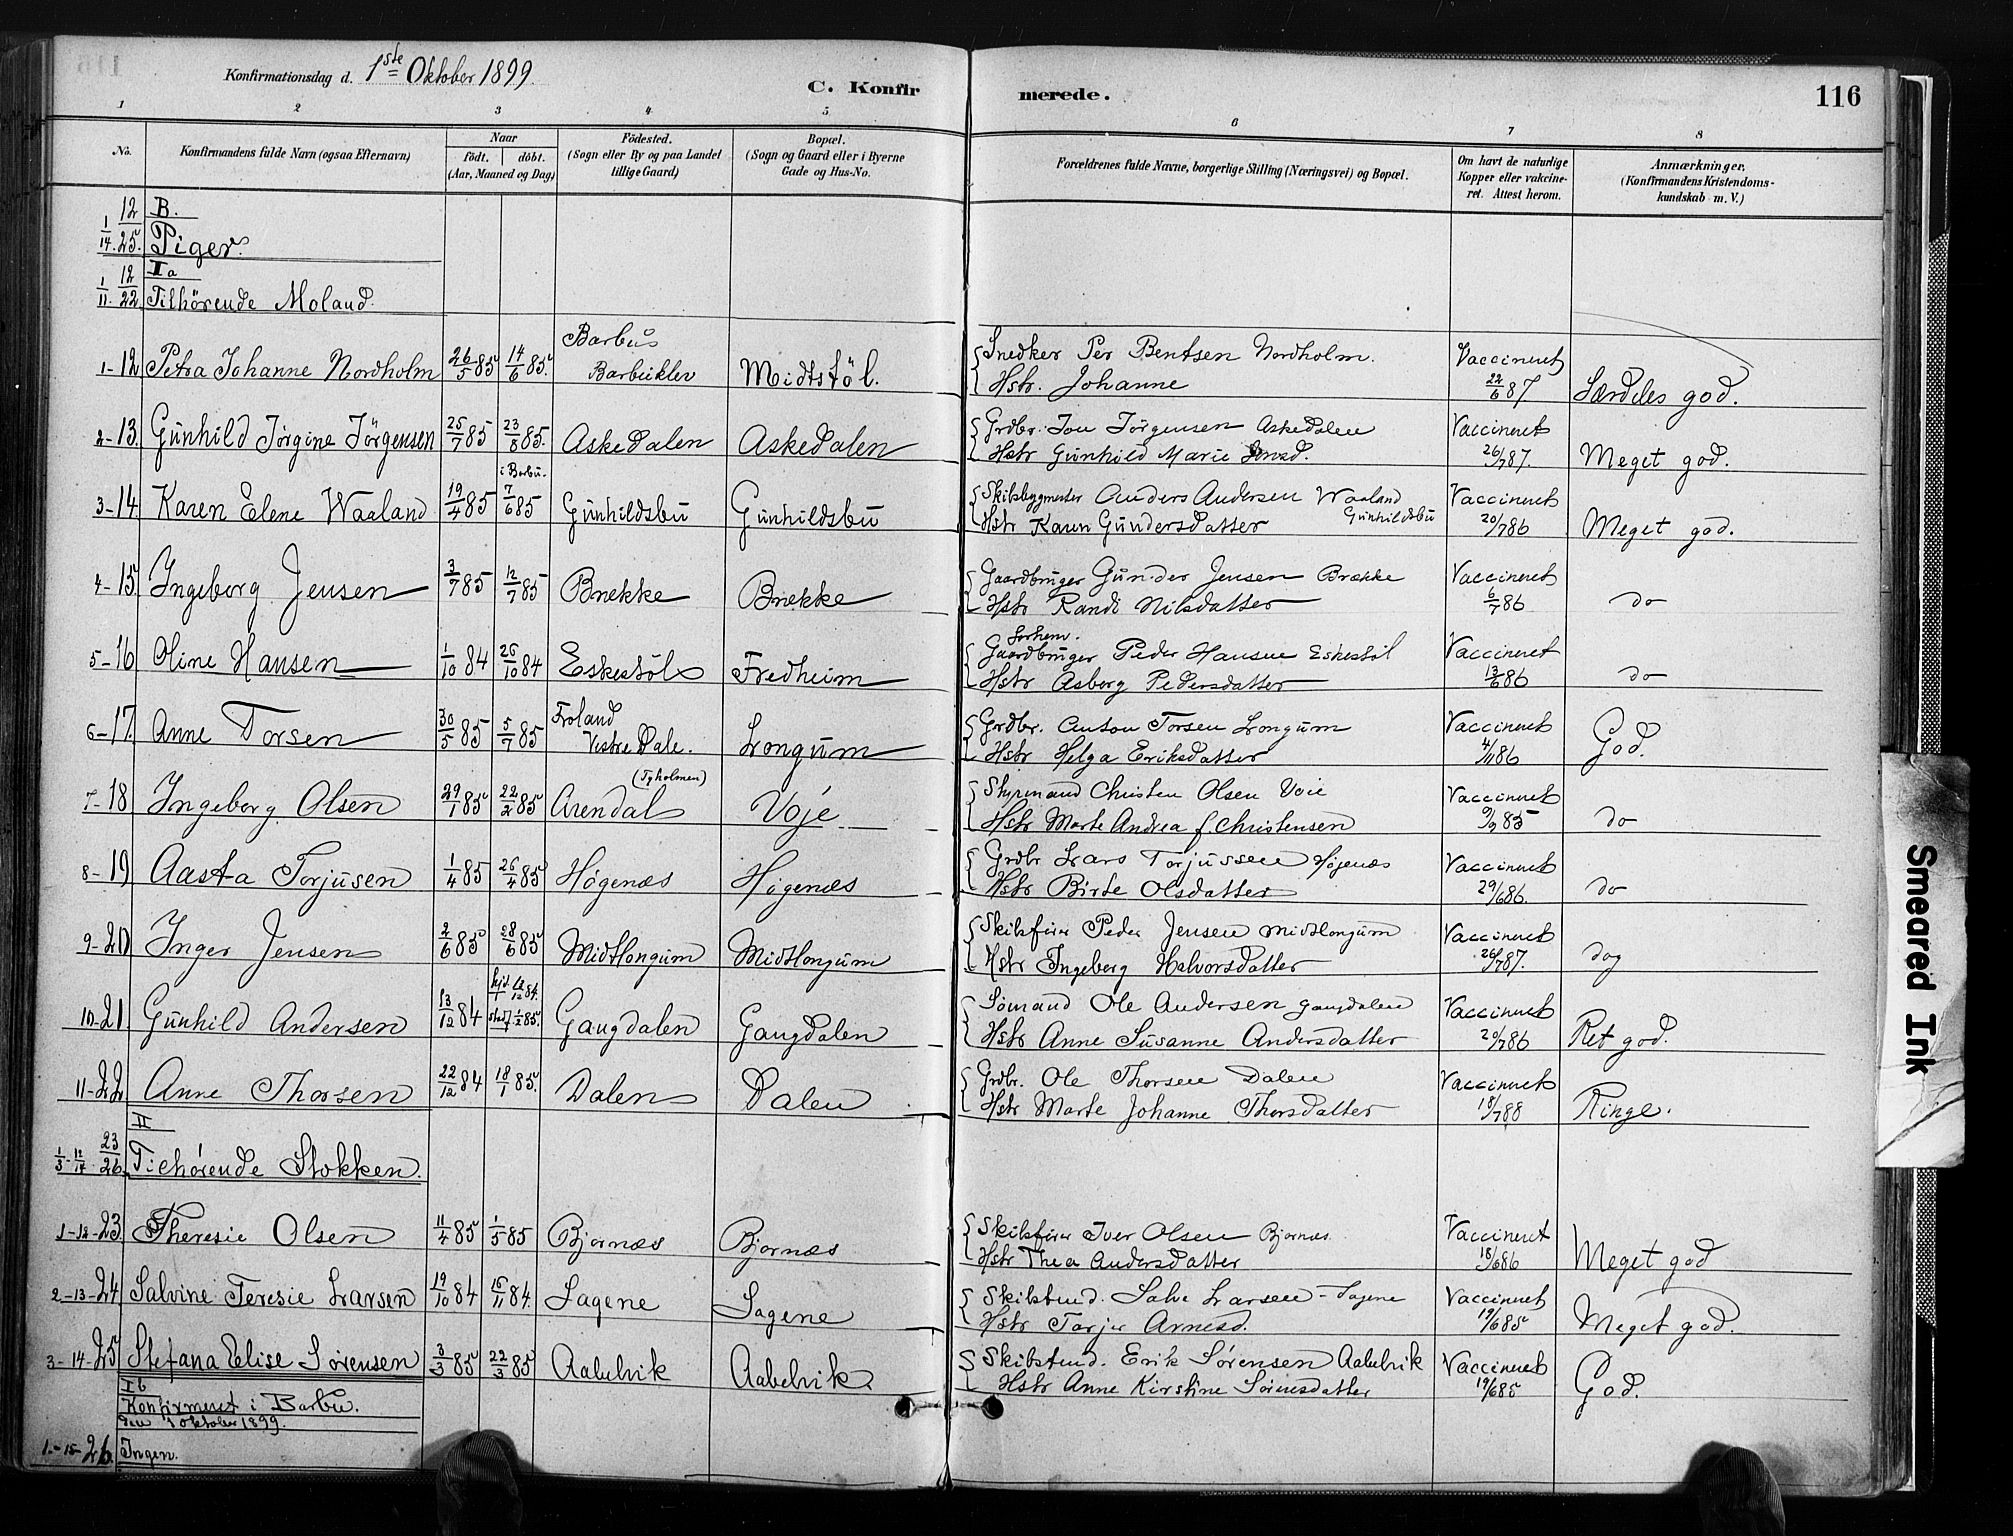 116
Konfirmationsdag d. 1ste Oktober 1899.
C. Konfirmerede.
1 2 3 4 5 6 7 8
No.
Konfirmandens fulde Navn (ogsaa Efternavn)
Naar
födt. döbt.
(Aar, Maaned og Dag)
Födested.
(Sogn eller By og paa Landet
tillige Gaard)
Bopæl.
(Sogn og Gaard eller i Byerne
Gade og Hus-No.
Forældrenes fulde Navne, borgerlige Stilling (Næringsvei) og Bopæl.
Om havt de naturlige
Kopper eller vakcine-
ret. Attest herom.
Anmærkninger,
(Konfirmandens Kristendoms-
kundskab m. V.)
1/14. 12/25. B.
Piger.
1/11. 12/22. Ia
Tilhörende Moland.
1-12 Petra Johanne Nordholm 26/5 85 14/6 85. Barbu Barbuklev Midtstöl. Snedker Per Bentsen Nordholm. Vaccineret
Hstr. Johanne 22/6 87 Særdeles god.
2-13. Gunhild Jörgine Jörgensen 25/7 85 23/8 85. Askedalen Askedalen Grdbr. Jon Jörgensen Askedalen Vaccineret
Hstr Gunhild Marie 26/7 87. Meget god.
3-14. Karen Elene Waaland 19/4 85 i Barbu. 7/6 85 Gunhildsbu Gunhildsbu Skibsbygmester Anders Andersen Waaland Vaccineret
Hstr Karen Gundersdatter Gunhildsbu 20/7 86 Meget god.
4-15. Ingeborg Jensen 3/7 85 12/7 85 Brekke Brekke Gaardbruger Gunder Jensen Brække Vaccineret
Hstr Randi Nilsdatter 6/7 86 do
5-16 Oline Hansen 1/10 84 26/10 84 Eskestöl Fredheim Gaardbruger Peder Hansen Eskestöl Vaccineret
Hstr Asborg Pedersdatter 13/6 86 do
6-17. Anne Torsen 30/5 85 5/7 85 Froland Vestre Dale. Longum Grdbr. Anton Torsen Longum Vaccineret
Hstr Helga Eriksdatter 4/11 86 God.
7-18 Ingeborg Olsen 29/1 85 22/2 85 (Tyholmen) Arendal Voje Styrmand Christen Olsen Voie Vaccineret
Hstr Marte Andrea f. Christensen 9/9 85 do
8-19 Aasta Torjusen 1/4 85 26/4 85 Högenæs Högenæs Grdbr Lars Torjussen Höjenæs Vaccineret
Hstr Birte Olsdatter 29/6 86. do
9-20 Inger Jensen 2/6 85 28/6 85 Midtlongum Midtlongum Skibsförer Peder Jensen Midtlongum Vaccineret
Hstr Ingeborg Halvorsdatter 26/7 87. dog
10-21 Gunhild Andersen 13/12 84 Gangdalen Gangdalen Sömand Ole Andersen Gangdalen Vaccineret
Hstr Anne Susanne Andersdatter 20/7 86 Ret god.
11-22. Anne Thorsen 22/12 84 18/1 85. Dalen Dalen Grdbr. Ole Thorsen Dalen Vaccineret
Hstr Marte Johanne Thorsdatter 18/7 88 Ringe.
II
1/3-12/14 23/26. Tilhörende Stokken.
1-12-23. Theresie Olsen 11/4 85 1/5 85 Bjornæs Bjornæs Skibsförer Iver Olsen Bjornæs. Vaccineret
Hstr Thea Andersdatter 18/6 86 Meget god
2-13-24. Salvine Teresie Larsen 19/10 84 16/11 84. Sagene Sagene Skibstmd. Salve Larsen - Sagene Vaccineret
Hstr Tarjer Arnesd. 19/6 85 Meget god.
3-14-25. Stefana Elise Sörensen 3/3 85 22/3 85 Aabelvik Aabelvik. Skibstmd. Erik Sörensen Aabelvik Vaccineret
Hstr Anne Kirstine Sörensdatter 19/6 85 God.
Ib
Konfirmeret i Barbu.
den 1 Oktober 1899.
1.-15-26 Ingen.
Smeared Ink